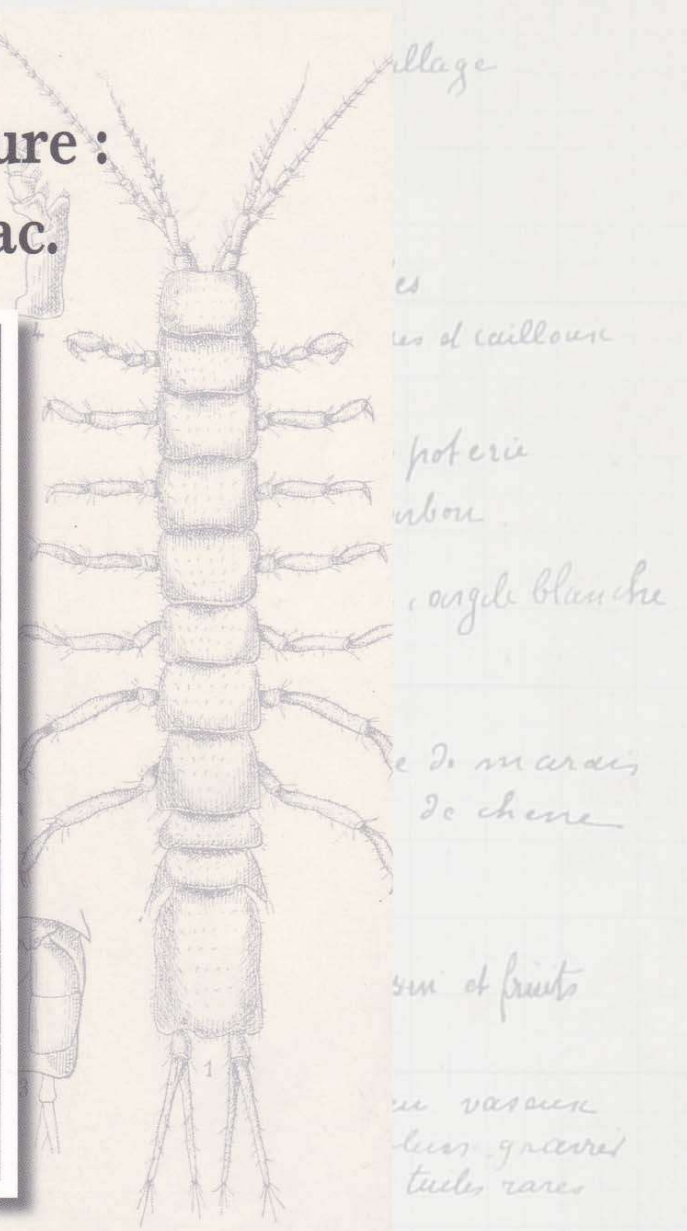 ure :
ac.
llage
4
es
es et cailloux
poterie
rbon
, argile blanche
e de marais
de chene
et fruits
1
3
vaseux
gravier
tuiles rares